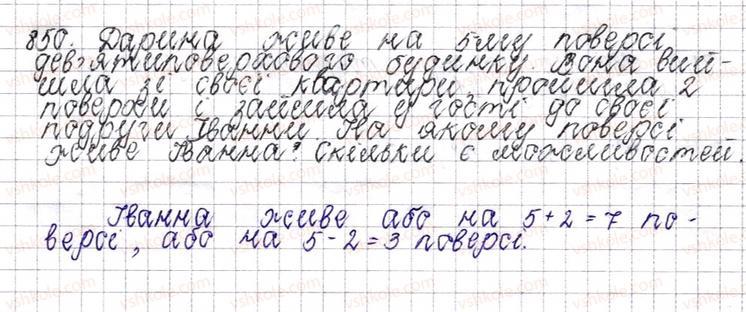 850. Дарина живе на 5му поверсі
дев'ятиповерхового будинку. Вона вий-
шла зі своєї квартири, пройшла 2
поверхи і зайшла у гості до своєї
подруги Іванни. На якому поверсі
живе Іванна? Скільки є можливостей.
Іванна живе або на 5 + 2 = 7 по-
версі, або на 5 - 2 = 3 поверсі.